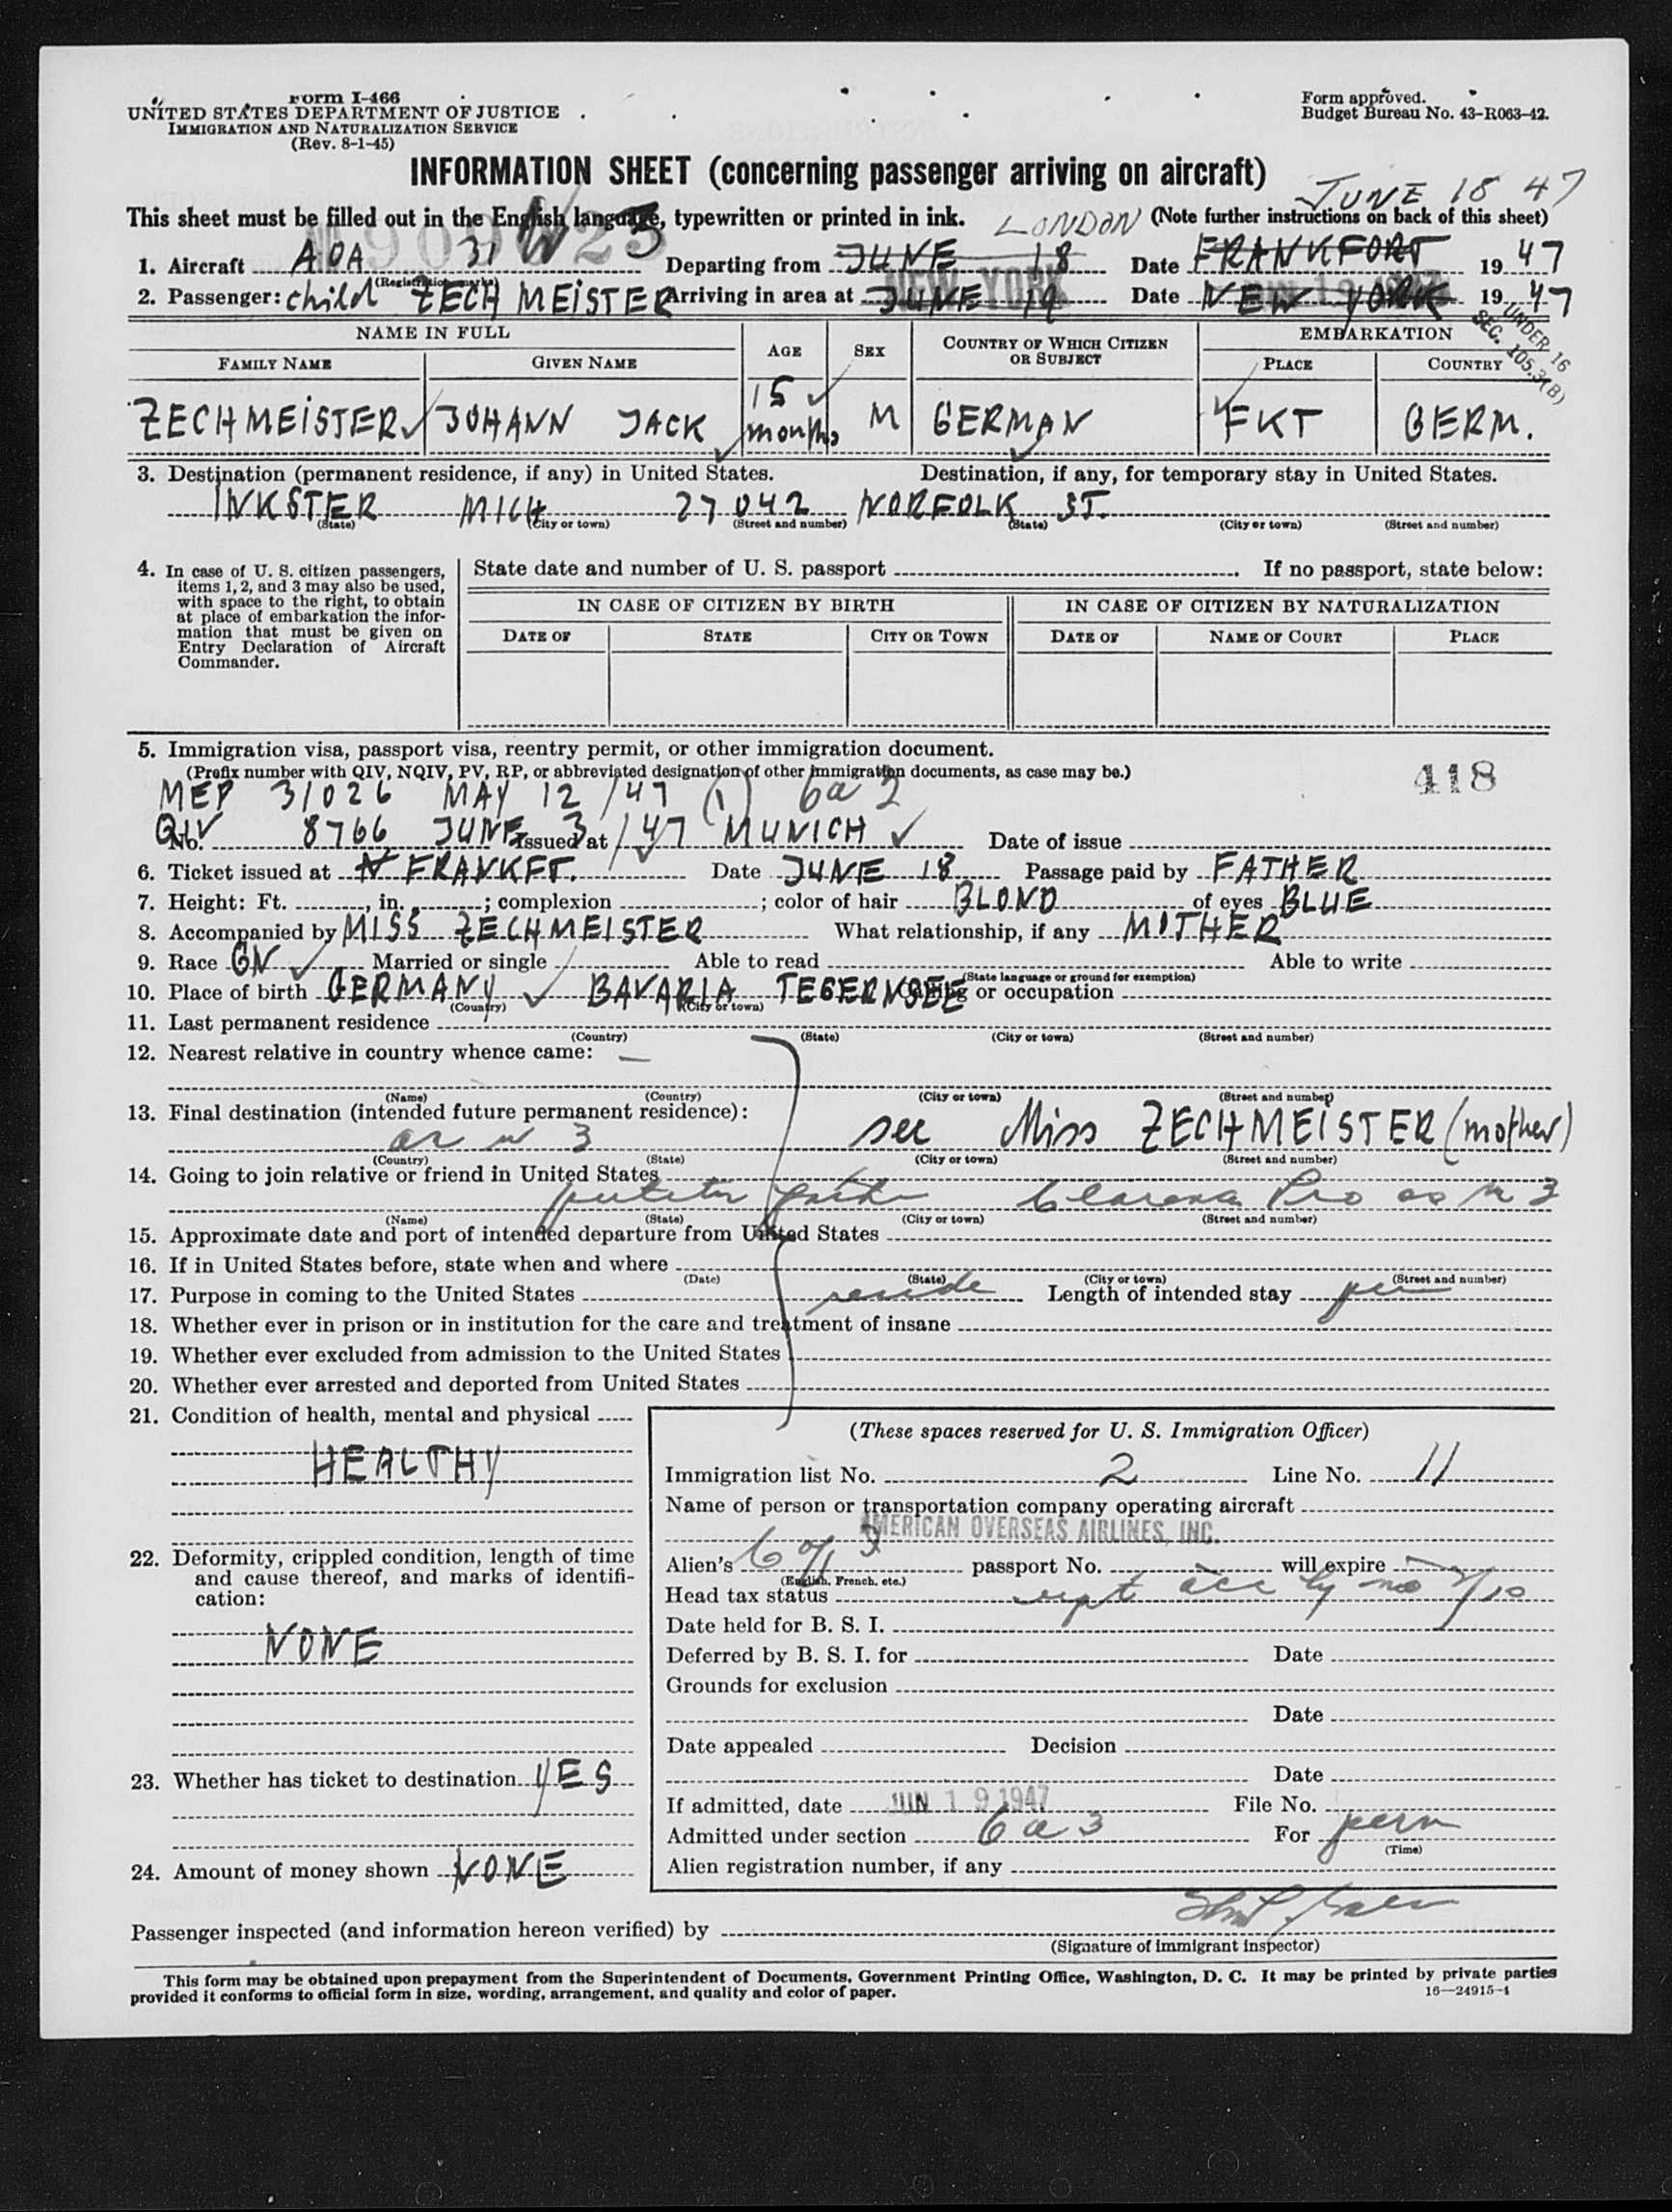 Form I-466
UNITED STATES DEPARTMENT OF JUSTICE
IMMIGRATION AND NATURALIZATION SERVICE
(Rev. 8-1-45)
Form approved.
Budget Bureau No. 43-R063-42.
INFORMATION SHEET (concerning passenger arriving on aircraft)
JUNE 18 47
This sheet must be filled out in the English language, typewritten or printed in ink. LONDON (Note further instructions on back of this sheet)
1. Aircraft AOA 31 Departing from JUNE 18 Date FRANKFORT 19 47
(Registration marks)
2. Passenger: child ZECHMEISTER Arriving in area at JUNE 19 Date NEW YORK 19 47
NEW YORK
UNDER 16
SEC. 105.3(B)
NAME IN FULL AGE SEX COUNTRY OF WHICH CITIZEN OR SUBJECT EMBARKATION
FAMILY NAME GIVEN NAME PLACE COUNTRY
ZECHMEISTER JOHANN JACK 15 months M GERMAN FKT GERM.
3. Destination (permanent residence, if any) in United States. Destination, if any, for temporary stay in United States.
INKSTER MICH 27042 NORFOLK ST.
(State) (City or town) (Street and number) (State) (City or town) (Street and number)
4. In case of U. S. citizen passengers, items 1, 2, and 3 may also be used, with space to the right, to obtain at place of embarkation the information that must be given on Entry Declaration of Aircraft Commander.
State date and number of U. S. passport . If no passport, state below:
IN CASE OF CITIZEN BY BIRTH IN CASE OF CITIZEN BY NATURALIZATION
DATE OF STATE CITY OR TOWN DATE OF NAME OF COURT PLACE
5. Immigration visa, passport visa, reentry permit, or other immigration document.
(Prefix number with QIV, NQIV, PV, RP, or abbreviated designation of other immigration documents, as case may be.)
418
MEP 31026 MAY 12 /47 (1) 6a3
QIV
No. 8766 JUNE 3 Issued at /47 MUNICH Date of issue
6. Ticket issued at FRANKFT. Date JUNE 18 Passage paid by FATHER
7. Height: Ft. , in. ; complexion ; color of hair BLOND of eyes BLUE
8. Accompanied by MISS ZECHMEISTER What relationship, if any MOTHER
9. Race GN Married or single Able to read Able to write
(State language or ground for exemption)
10. Place of birth GERMANY BAVARIA TEGERNSEE Calling or occupation
(Country) (City or town)
11. Last permanent residence
(Country) (State) (City or town) (Street and number)
12. Nearest relative in country whence came: —
(Name) (Country) (City or town) (Street and number)
13. Final destination (intended future permanent residence):
as in 3 see Miss ZECHMEISTER (mother)
(Country) (State) (City or town) (Street and number)
14. Going to join relative or friend in United States
Clarence as in 3
(Name) (State) (City or town) (Street and number)
15. Approximate date and port of intended departure from United States
16. If in United States before, state when and where
(Date) (State) (City or town) (Street and number)
17. Purpose in coming to the United States reside Length of intended stay per
18. Whether ever in prison or in institution for the care and treatment of insane
19. Whether ever excluded from admission to the United States
20. Whether ever arrested and deported from United States
21. Condition of health, mental and physical
HEALTHY
22. Deformity, crippled condition, length of time and cause thereof, and marks of identification:
NONE
23. Whether has ticket to destination YES
24. Amount of money shown NONE
(These spaces reserved for U. S. Immigration Officer)
Immigration list No. 2 Line No. 11
Name of person or transportation company operating aircraft
AMERICAN OVERSEAS AIRLINES, INC.
Alien's passport No. will expire
(English, French, etc.)
Head tax status
Date held for B. S. I.
Deferred by B. S. I. for Date
Grounds for exclusion
Date
Date appealed Decision
Date
If admitted, date JUN 19 1947 File No.
Admitted under section 6a3 For perm
(Time)
Alien registration number, if any
Passenger inspected (and information hereon verified) by
(Signature of immigrant inspector)
This form may be obtained upon prepayment from the Superintendent of Documents, Government Printing Office, Washington, D. C. It may be printed by private parties
provided it conforms to official form in size, wording, arrangement, and quality and color of paper.
16—24915-1